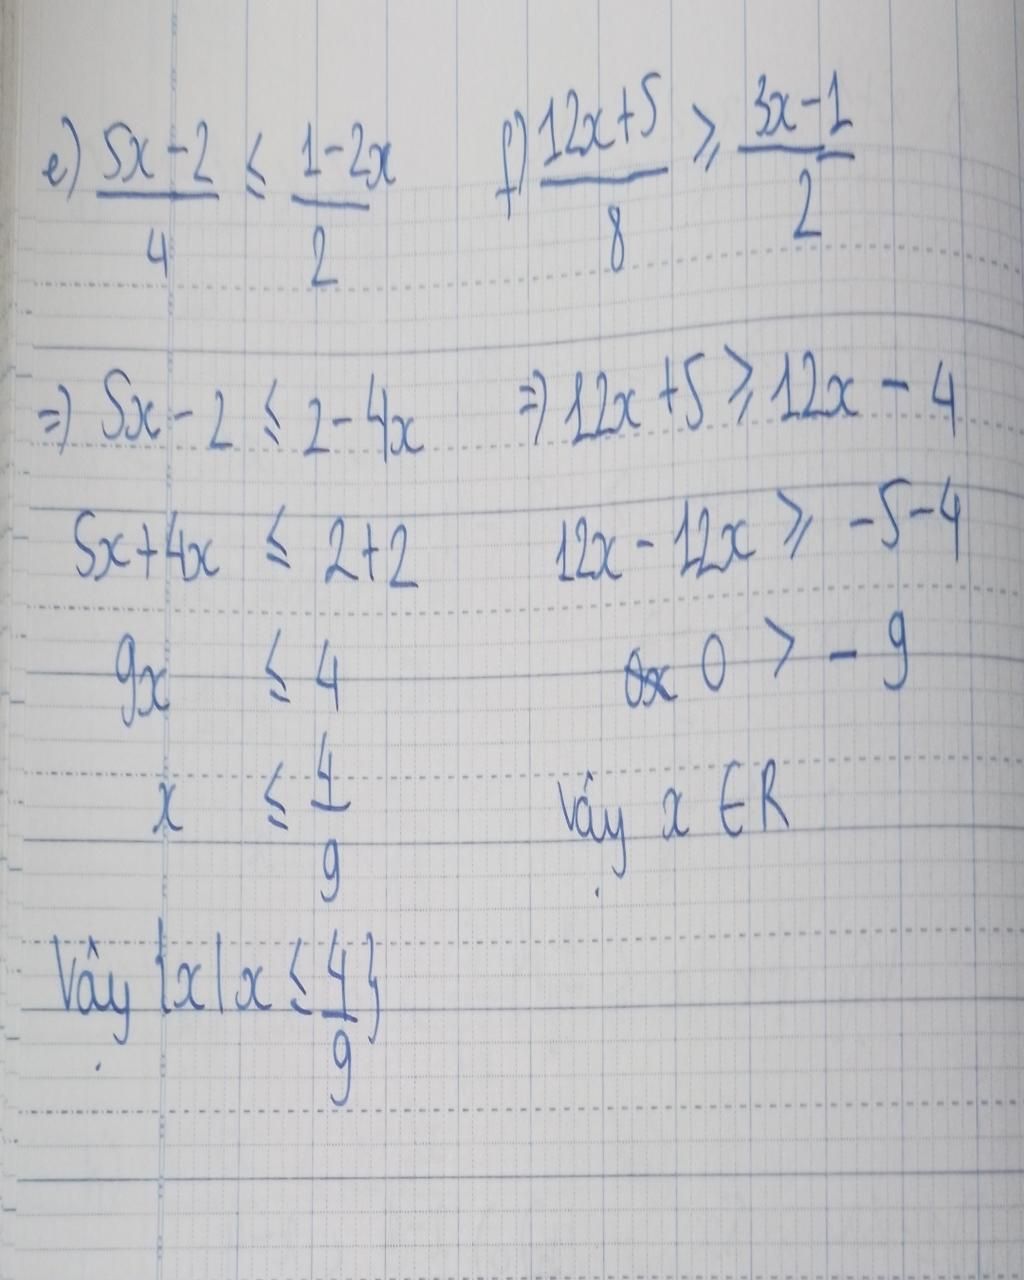 e) (5x-2)/4 ≤ (1-2x)/2
⇒) 5x - 2 ≤ 2 - 4x
5x + 4x ≤ 2+2
9x ≤ 4
x ≤ 4/9
Vậy {x | x ≤ 4/9}
f) (12x+5)/8 ⩾ (3x-1)/2
⇒) 12x + 5 ⩾ 12x - 4
12x - 12x ⩾ -5-4
0 > - 9
Vậy x ∈ R